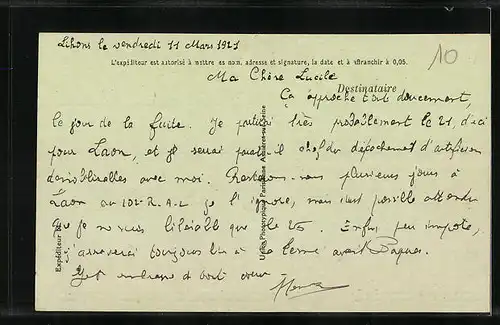 Lihons le vendredi 11 Mars 1921
10
L'expéditeur est autorisé à mettre es nom, adresse et signature, la date et à affranchir à 0,05.
Ma Chère Lucile
Destinataire
Ça approche tout doucement,
le jour de la fuite. Je partirai très probablement le 21, d'ici
pour Laon, et je serai paraît-il chef du détachement d'artificiers
avec moi. Resterons-nous plusieurs jours à
Laon au je l'ignore, mais il est possible
que je ne sois que le 25. Enfin peu importe,
j'arriverai toujours bien à la ferme avant Pâques.
Je t'embrasse de tout cœur
Expéditeur
Usines Phototypiques Parisiennes Asnières-sur-Seine